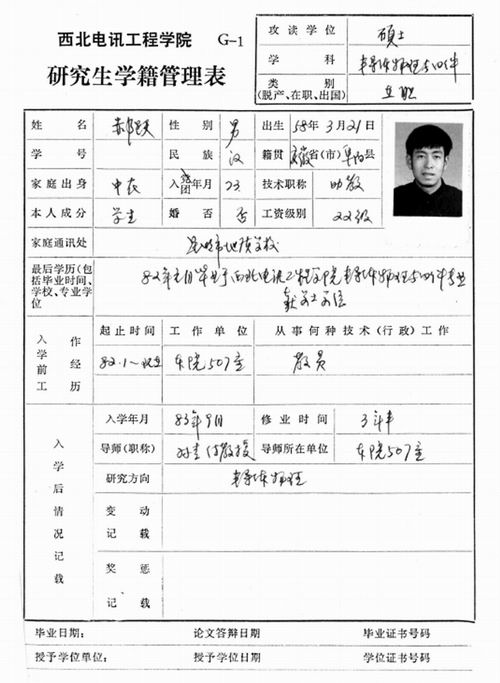 西北电讯工程学院 G-1
研究生学籍管理表
攻读学位 硕士
学科 半导体物理与器件
类别 (脱产、在职、出国) 在职
姓名 郝跃 性别 男 出生 58年3月21日
学号 民族 汉 籍贯 安徽省(市)阜阳县
家庭出身 中农 入党团年月 73 技术职称 助教
本人成分 学生 婚否 否 工资级别 22级
家庭通讯处 昆明市地质学校
最后学历(包括毕业时间、学校、专业学位 82年元月毕业于西北电讯工程学院半导体物理与器件专业
获学士学位
入学前工作经历 起止时间 工作单位 从事何种技术(行政)工作
82.1~现在 本院507室 教员
入学后情况记载 入学年月 83年9月 修业时间 3年
导师(职称) 副教授 导师所在单位 本院507室
研究方向 半导体物理
变动记载
奖惩记载
毕业日期: 论文答辩日期 毕业证书号码
授予学位单位: 授予学位日期 学位证书号码